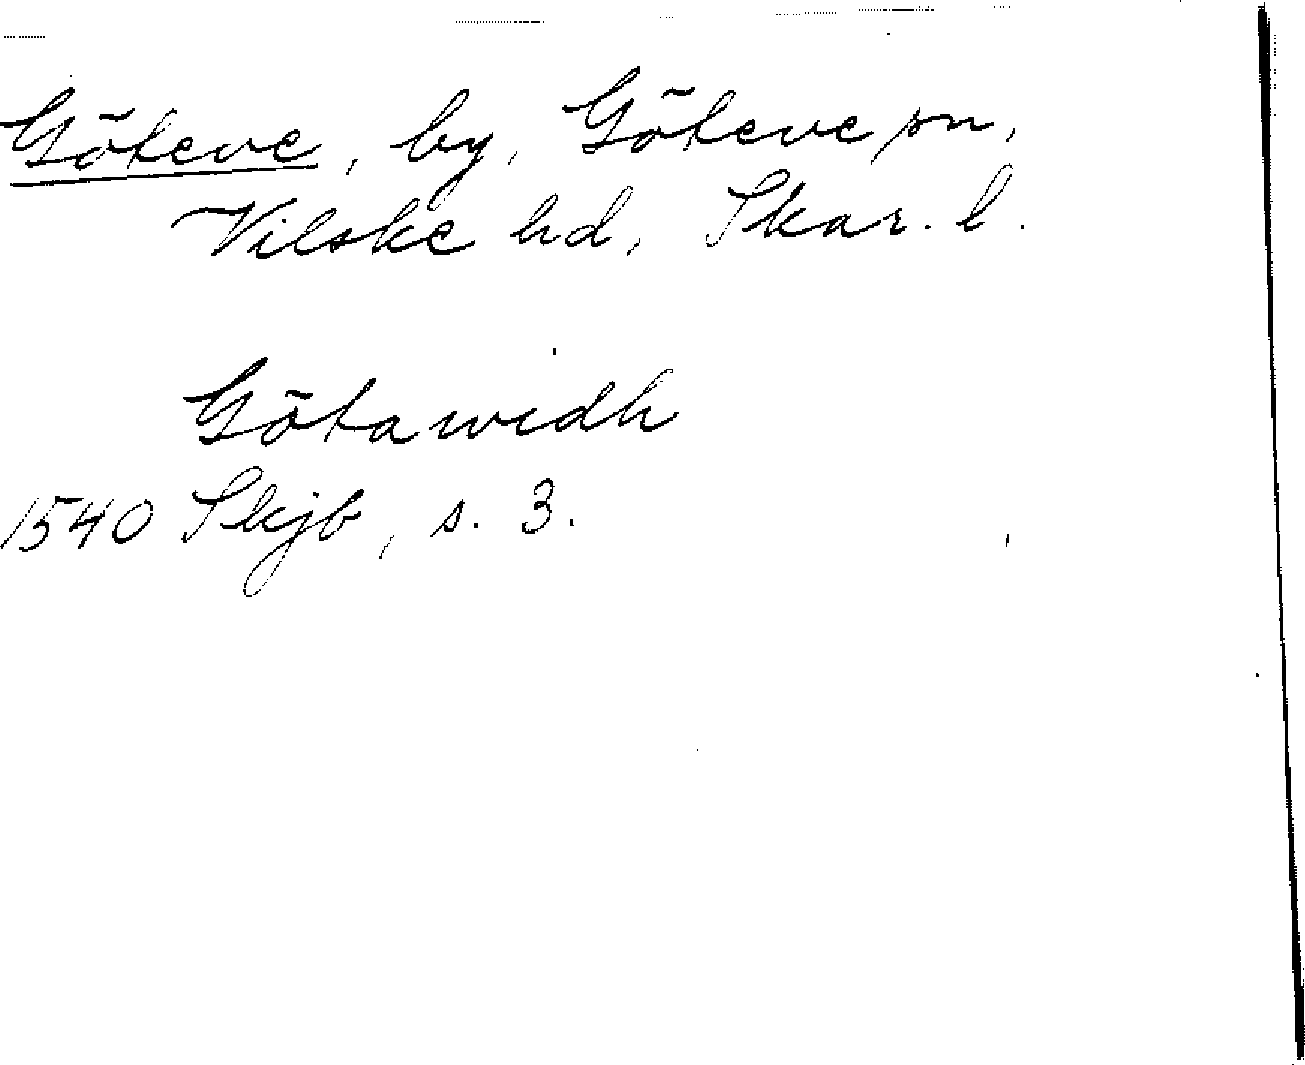 Göteve, by, Göteve sn,
Vilske hd, Skar. l.
Götawedh
1540 Skjb, s. 3.